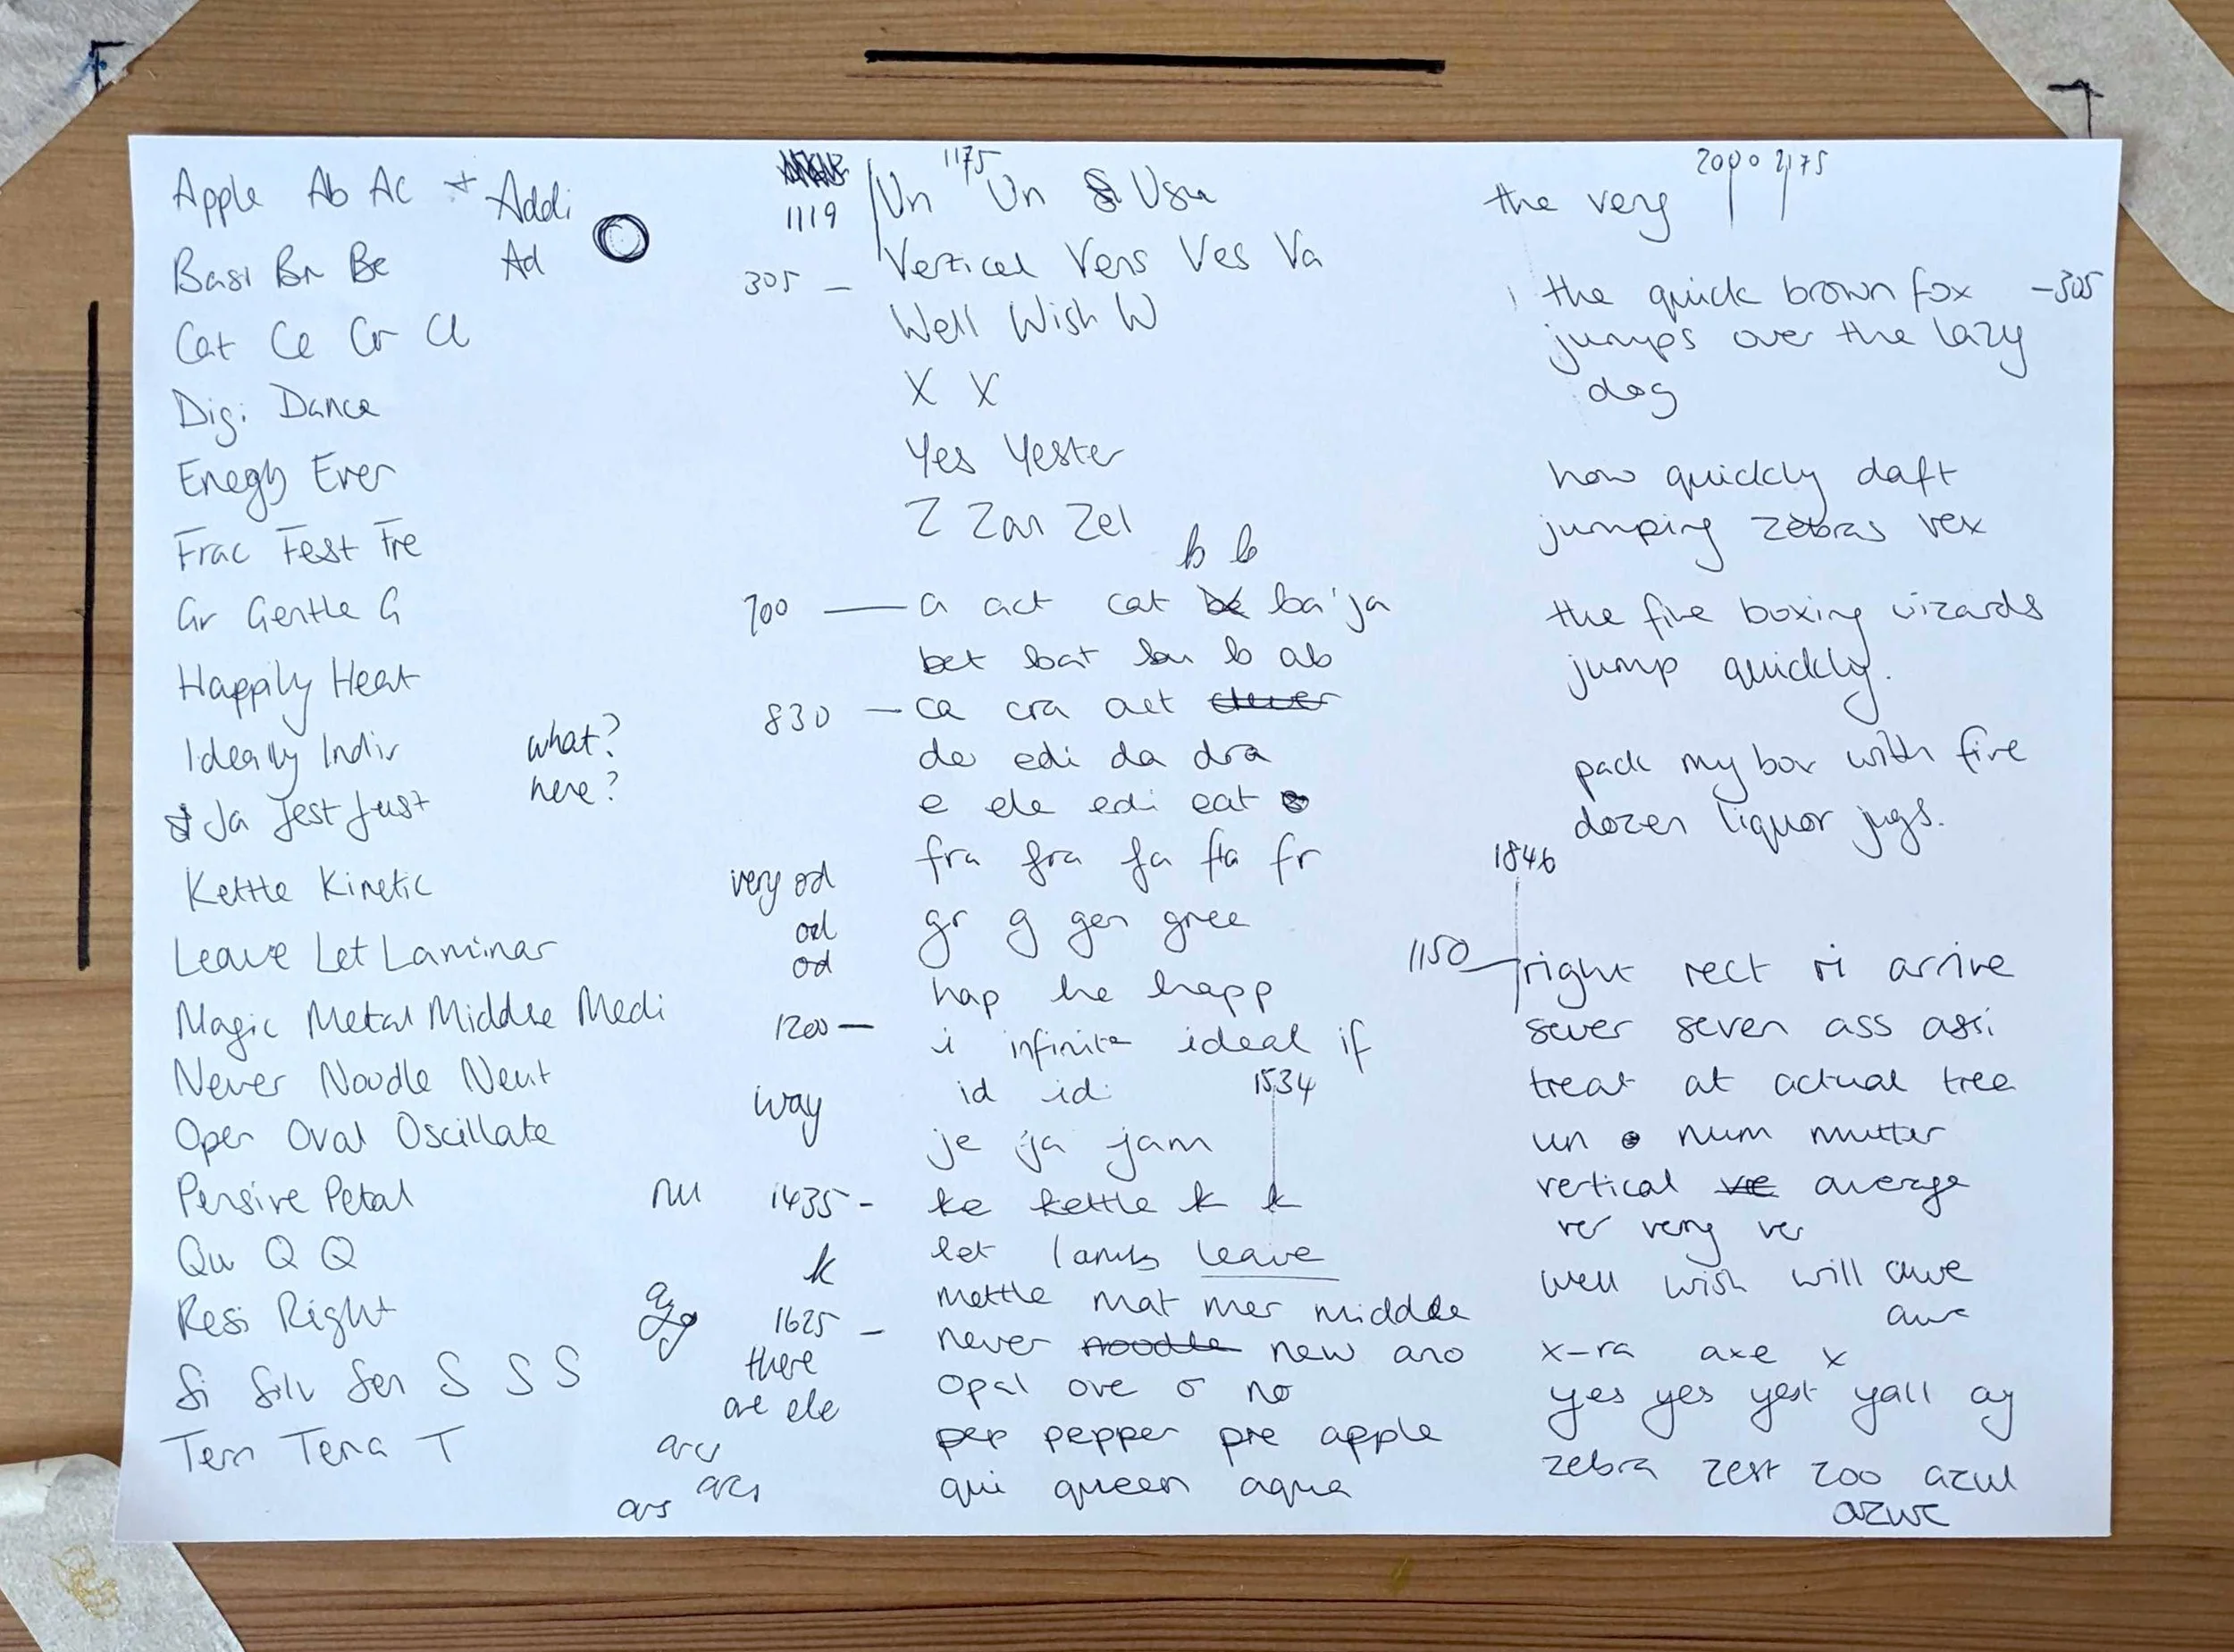 Apple Ab Ac + Addi
Basi Br Be Ad
Cat Ce Cr Cl
Digi Dance
Enegy Ever
Frac Fest Fre
Gr Gentle G
Happily Heat
Ideally Indiv
what?
here?
Ja Jest Just
Kettle Kinetic
Leave Let Laminar
Magic Metal Middle Medi
Never Noodle Neut
Open Oval Oscillate
Pensive Petal
Qu Q Q
Resi Right
Si Silv Sen S S S
Tern Tena T
1119
1175
Un Un Usu
305 –
Vertical Vens Ves Va
Well Wish W
X X
Yes Yester
Z Zan Zel
b b
700 — a act cat ba ja
bet bat bu b ab
830 – ca cra act clever
de edi da dra
e ele edi eat
fra fra fa fla fr
very od
od
od
gr g gen gree
hap he happ
1200 –
i infinite ideal if
id idi
1534
way
je ja jam
nu
1435 –
ke kettle k k
k
let lamb leave
mettle mat mer middle
1625 –
never noodle new ano
there
are ele
opal ove o no
pep pepper pre apple
qui queen aqua
the very
2000 2175
the quick brown fox –305
jumps over the lazy
dog
how quickly daft
jumping zebras vex
the five boxing wizards
jump quickly.
pack my box with five
dozen liquor jugs.
1846
1150
right rect ri arrive
sever seven ass assi
treat at actual tree
un num mutter
vertical ve average
ver very ver
well wish will awe
awe
x-ra axe x
yes yes yest yall ay
zebra zest zoo azul
azure